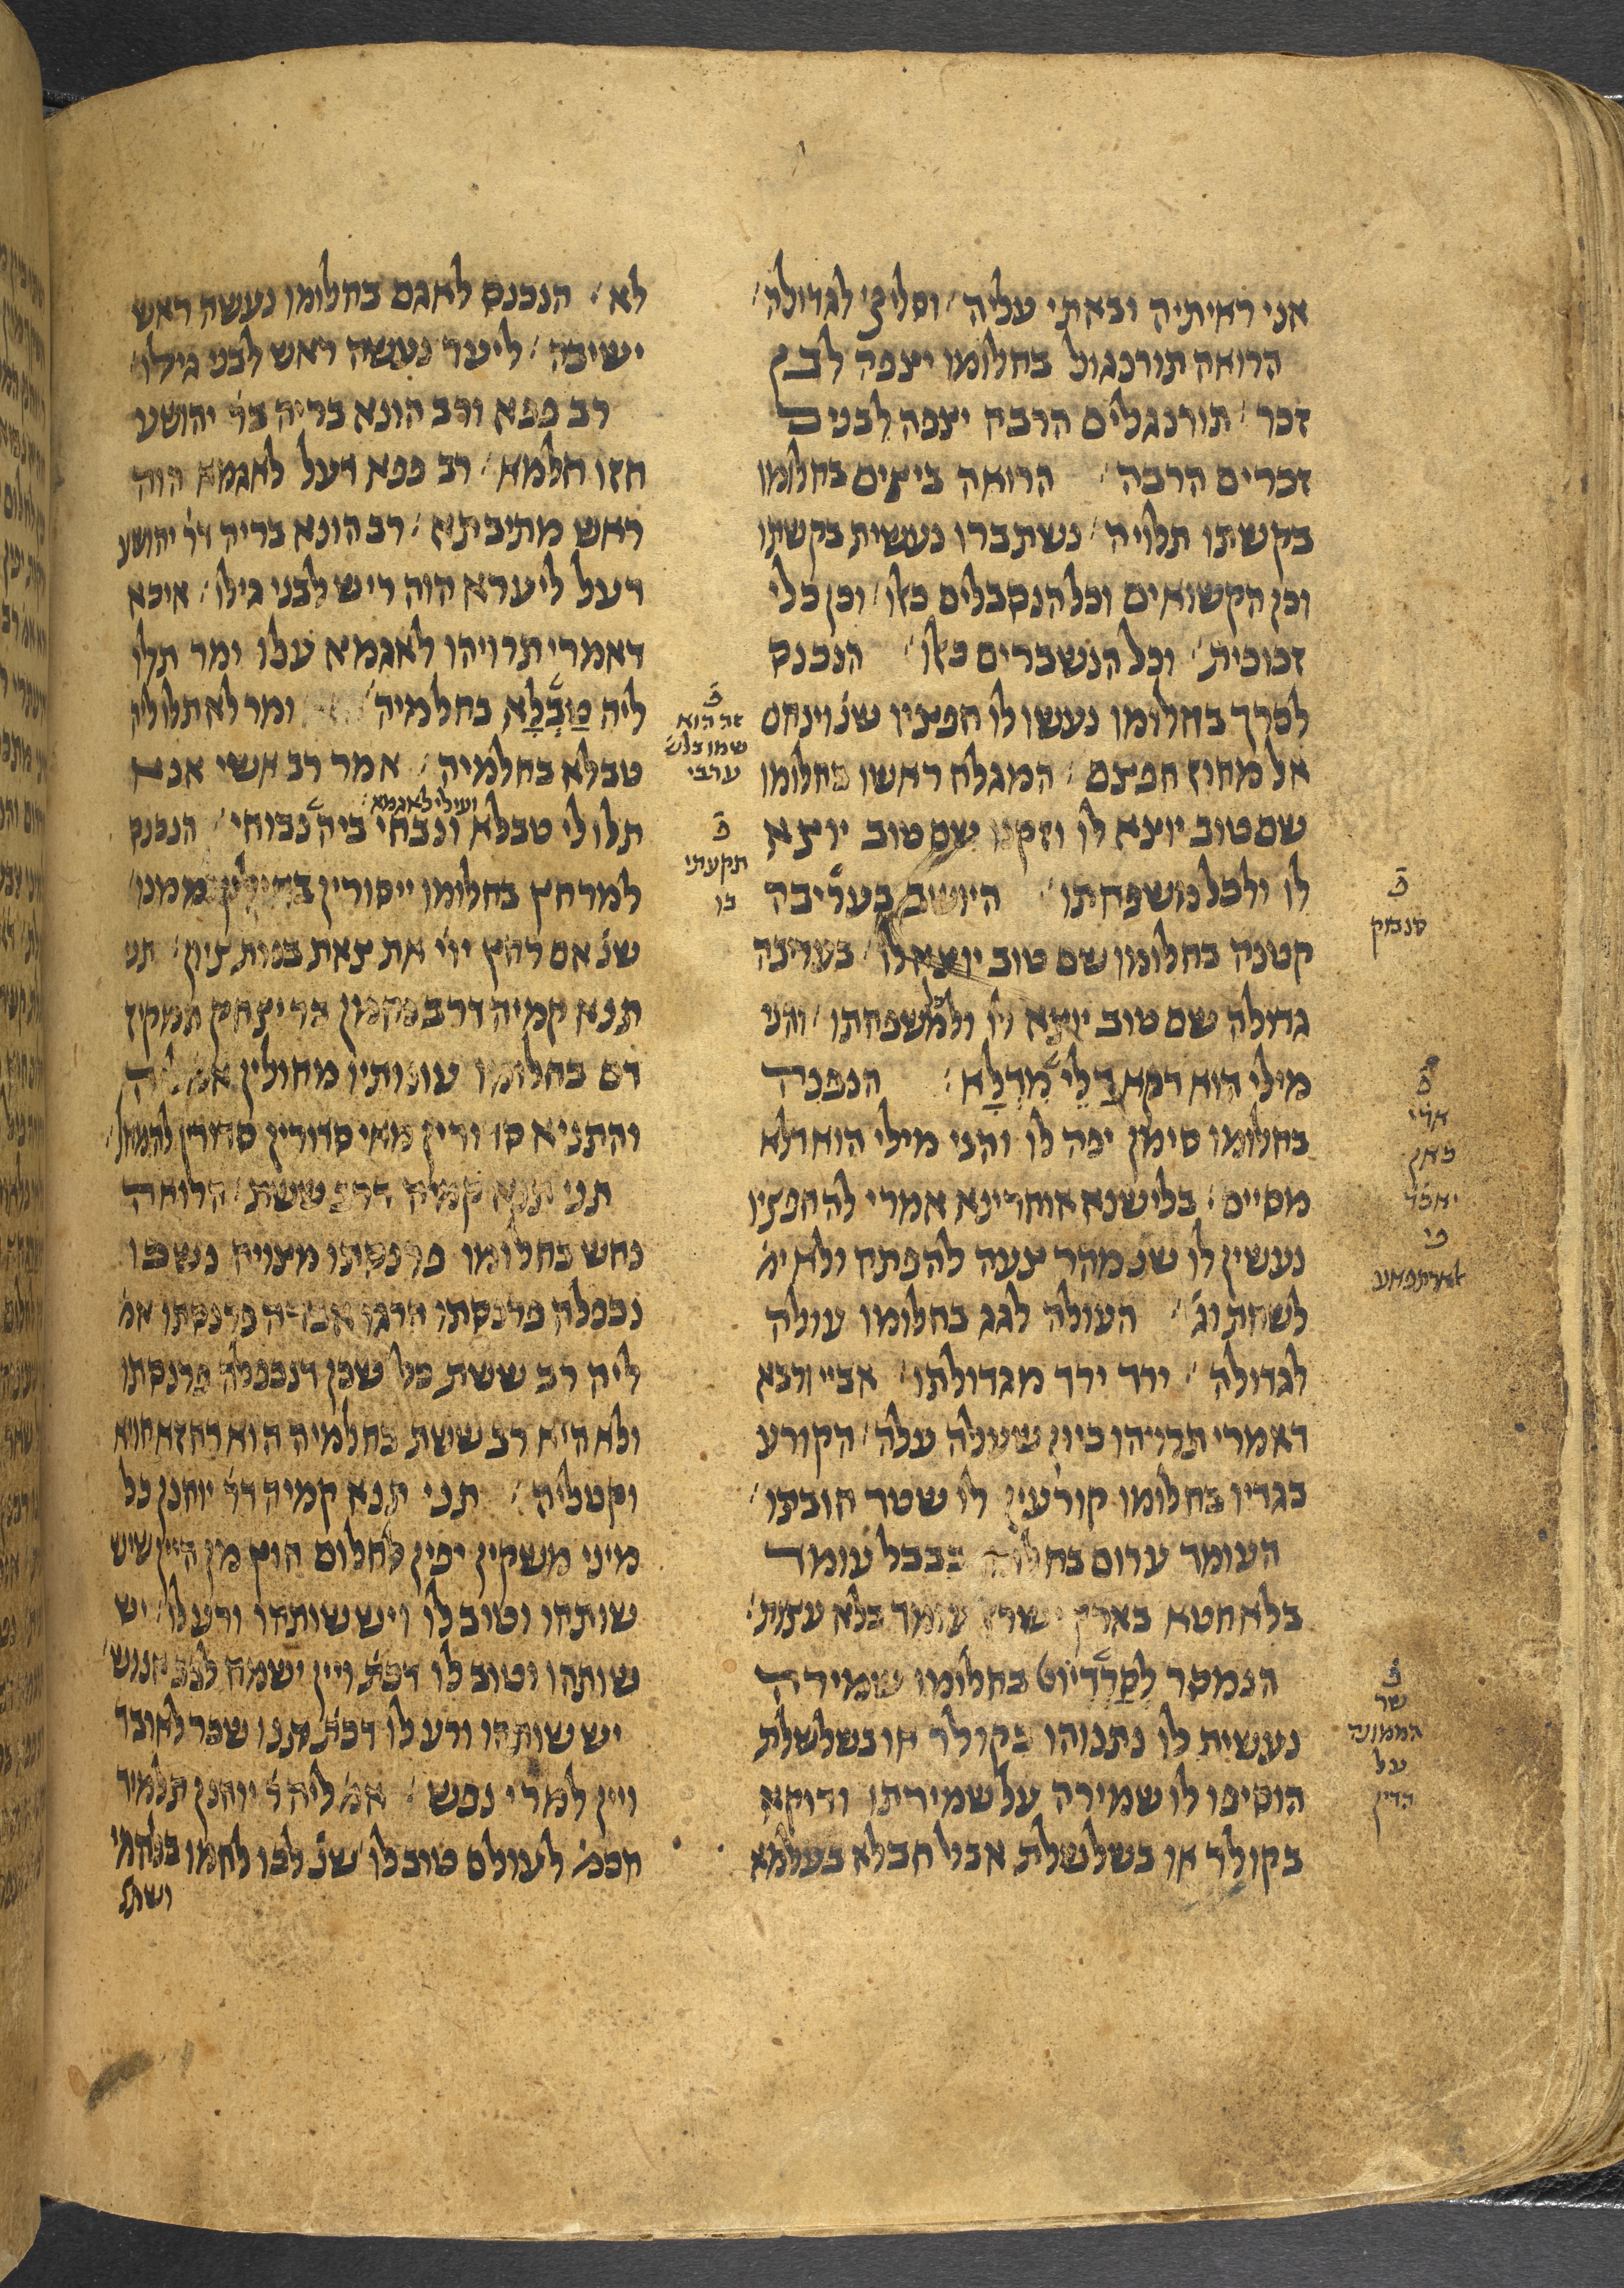 אני ראיתיה ובאתי עליה וסליקי לגדולה
הרואה תורנגול בחלומו יצפה לבן
זכר תורנגלים הרבה יצפה לבנים
זכרים הרבה הרואה ביצים בחלומו
בקשתו תלויה נשתברו נעשית בקשתו
וכן הקשואים וכל הנסבלים כאלו וכן כלי
זכוכית וכל הנשברים כאלו הנכנס
לכרך בחלומו נעשו לו חפציו שנ׳ וינחם
אל מחוז חפצם המגלח ראשו בחלומו
שם טוב יוצא לו וזקנו שם טוב יוצא
לו ולכל משפחתו היושב בעריבה
קטנה בחלומו שם טוב יוצא לו בעריבה
גדולה שם טוב יוצא לו ולכל משפחתו והני
מילי הוא דקא דלי מדלא הנפנה
בחלומו סימן יפה לו והני מילי הוא דלא
מסיים בלישנא אוחרינא אמרי לה חפציו
נעשין לו שנ׳ מהר צעה להפתח ולא ימ׳
לשחת וג׳ העולה לגג בחלומו עולה
לגדולה ירד ירד מגדולתו אביי ורבא
דאמרי תרויהו כיון שעלה עלה הקורע
בגדיו בחלומו קורעין לו שטר חובתו
העומד ערום בחלומו בבבל עומד
בלא חטא בארץ ישראל עומד בלא עצות
הנמסר לסרדיוט בחלומו שמירה
נעשית לו נתנוהו בקולר או בשלשלת
הוסיפו לו שמירה על שמירתו ודוקא
בקולר או בשלשלת אבל חבלא בעלמא
פ׳
סנבוק
פ׳
יחכר
פ׳
שר
הממונה
על
הדין
לא הנכנס לאגם בחלומו נעשה ראש
ישיבה ליער נעשה ראש לבני גילו
רב פפא ורב הונא בריה דר׳ יהושע
חזו חלמא רב פפא דעל לאגמא הוה
ראש מתיבתא רב הונא בריה דר׳ יהושע
דעל ליערא הוה ריש לבני גילו איכא
דאמרי תרויהו לאגמא עלו ומר תלו
ליה טבלא בחלמיה ומר לא תלו ליה
טבלא בחלמיה אמר רב אשי אנא
ועילי לאגמא
תלו לי טבלא ונבחי ביה נבוחי הנכנס
למרחץ בחלומו ייסורין ממנו
שנ׳ אם רחץ יוי את צאת בנות ציון תני
תנא קמיה דרב נחמן בר יצחק המקיז
דם בחלומו עונותיו מחולין
והתניא סדורין מאי סדורין סדורין להמחל
תני תנא קמיה דרב ששת הרואה
נחש בחלומו פרנסתו מצויה נשכו
נכפלה פרנסתו הרגו אבדה פרנסתו אמ׳
ליה רב ששת כל שכן דנכפלה פרנסתו
ולא היא רב ששת בחלמיה הוא דחזא חויא
וקטליה תני תנא קמיה דר׳ יוחנן כל
מיני משקין יפין לחלום חוץ מן היין שיש
שותהו וטוב לו ויש שותהו ורע לו יש
שותהו וטוב לו דכת׳ ויין ישמח לבב אנוש
יש שותהו ורע לו דכת׳ תנו שכר לאובד
ויין למרי נפש אמ׳ ליה ר׳ יוחנן תלמיד
חכמ׳ לעולם טוב לו שנ׳ לכו לחמו בלחמי
ושתו
פ׳
זה הוא
שמו בלש׳
ערבי
פ׳
תקעתי
בו